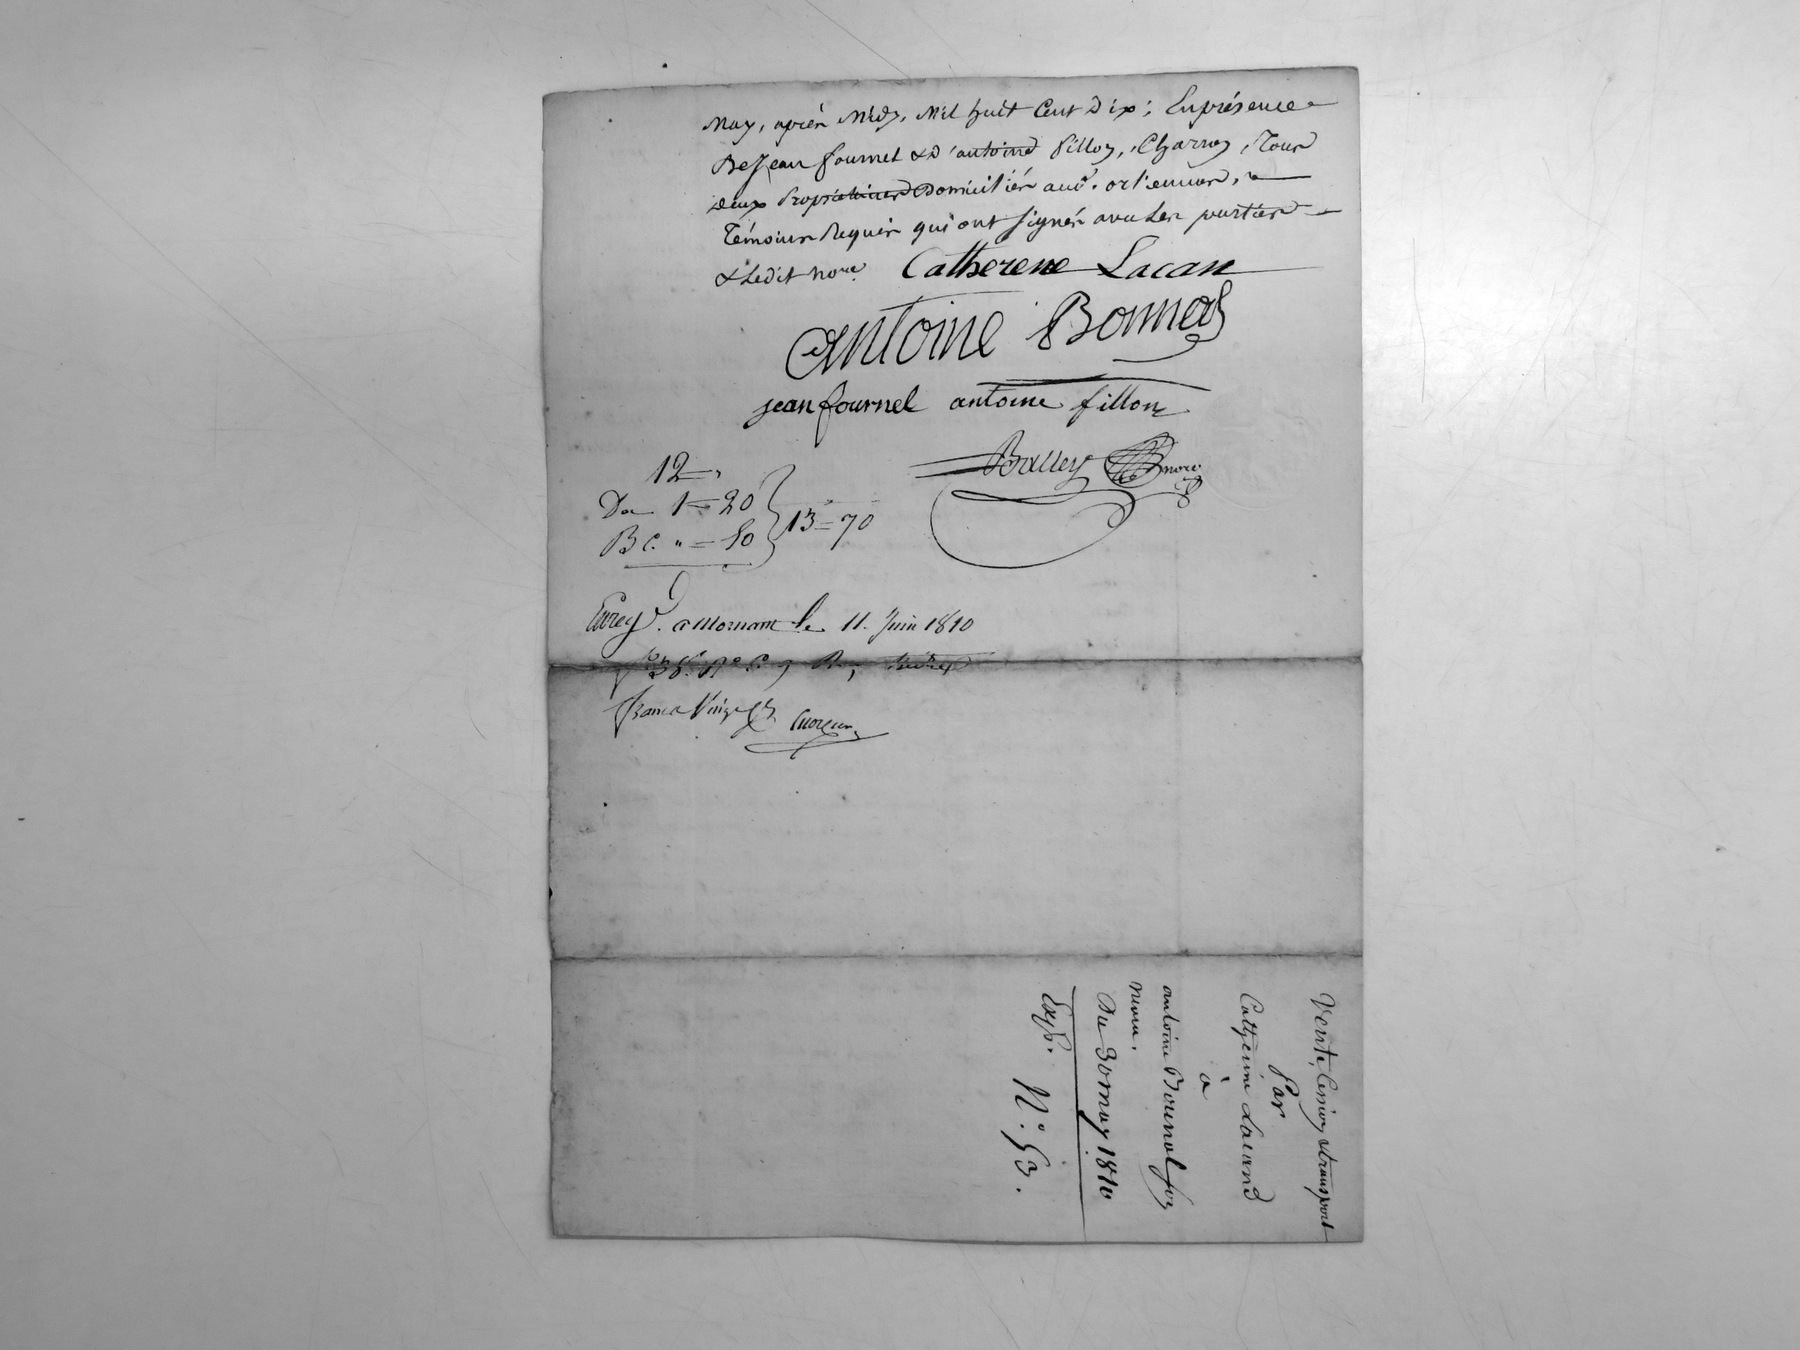 May, après Midy, Mil huit Cent Dix; En présence
De Jean fournel & D'antoine fillon, Charron, Tous
deux Propriétaires Domiciliés aud. orliennas,
Témoins Requis qui ont signés avec les parties
& Ledit nore. Catherene Lacan
antoine Bonnal
jean fournel antoine fillon
12 =
Dm 1 = 20
Bc. " = 50
13 = 70
Balley nore
Enregé. a Mornant le 11. Juin 1810
fo 38. Ro C. 9
Vente, Cession & transport
Par
Catherine Lacand
à
antoine Bounal son
neveu.
Du 30 may 1810
Exp.
N.° 53.